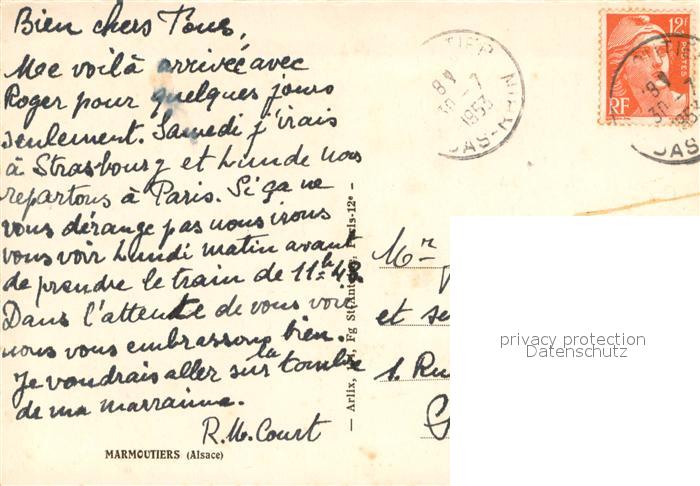 Bien chers Tous,
Me voilà arrivée avec
Roger pour quelques jours
seulement. Samedi j'irais
à Strasbourg et Lunde nous
repartons à Paris. Si ça ne
vous dérange pas nous irons
vous voir Lundi matin avant
de prendre le train de 11h 48
Dans l'attente de vous voir
nous vous embrassons bien.
Je voudrais aller sur la tombe
de ma marraine.
R.M. Court
MARMOUTIERS (Alsace)
— Arlix, Fg St Antoine, Paris-12e —
Mr
et
1. Ru
8
30-7
1953
BAS-RHIN
12F
POSTES
RF
8
30-7
1953
BAS
privacy protection
Datenschutz